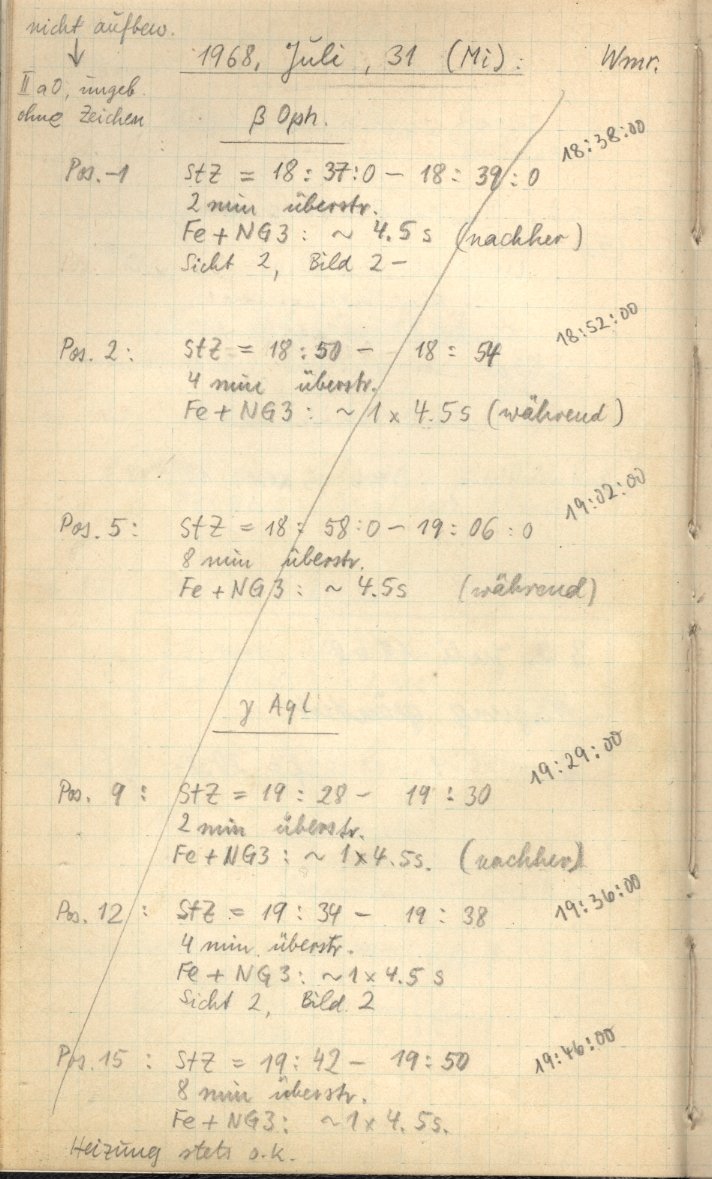 nicht aufbew.
↓
1968, Juli, 31 (Mi): Wmr.
II a O, ungeb.
ohne Zeichen
β Oph.
18:38:00
Pos. -1 StZ = 18:37:0 - 18:39:0
2 min überstr.
Fe + NG3: ~ 4.5 s (nachher)
Sicht 2, Bild 2-
18:52:00
Pos. 2: StZ = 18:50 - 18:54
4 min überstr.
Fe + NG3: ~ 1 x 4.5 s (während)
19:02:00
Pos. 5: StZ = 18:58:0 - 19:06:0
8 min überstr.
Fe + NG3: ~ 4.5 s (während)
γ Aql
19:29:00
Pos. 9: StZ = 19:28 - 19:30
2 min überstr.
Fe + NG3: ~ 1 x 4.5 s. (nachher)
19:36:00
Pos. 12: StZ = 19:34 - 19:38
4 min überstr.
Fe + NG3: ~ 1 x 4.5 s
Sicht 2, Bild 2
19:46:00
Pos. 15: StZ = 19:42 - 19:50
8 min überstr.
Fe + NG3: ~ 1 x 4.5 s.
Heizung stets o.k.